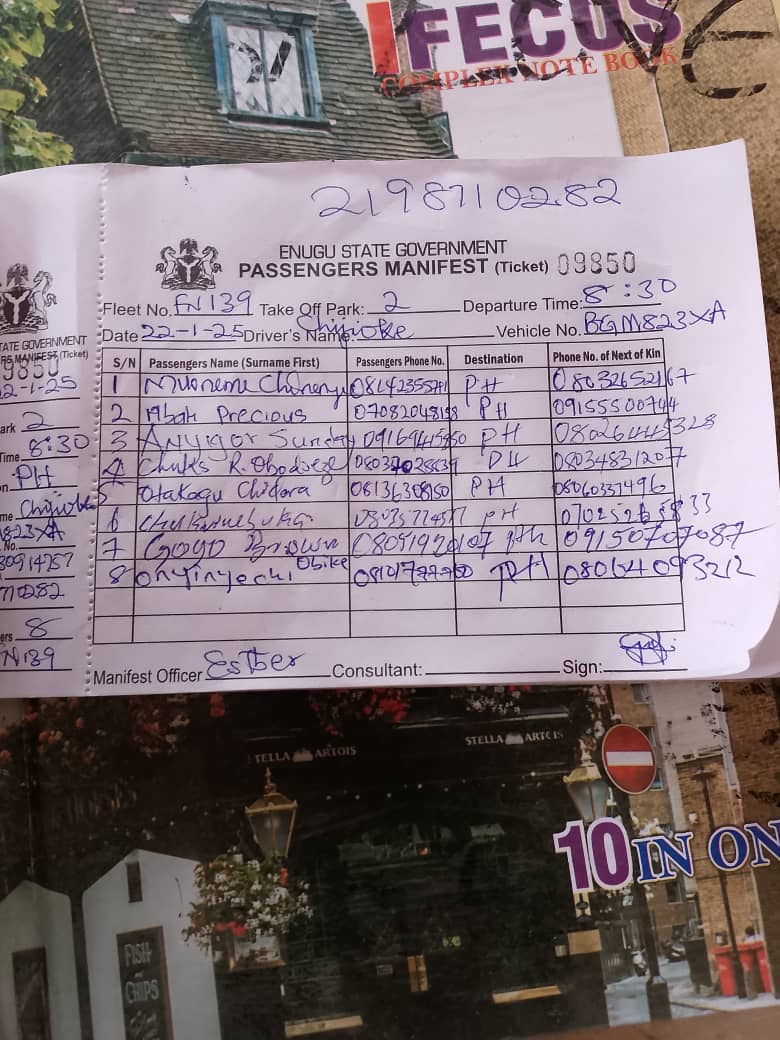 IFECUS
COMPLEX NOTE BOOK
2198710282
ENUGU STATE GOVERNMENT
PASSENGERS MANIFEST (Ticket) 09850
Fleet No. FN139 Take Off Park: 2 Departure Time: 8:30
Date 22-1-25 Driver's Name: Chijioke Vehicle No. BGM823XA
S/N Passengers Name (Surname First) Passengers Phone No. Destination Phone No. of Next of Kin
1 Chinenye PH 08032652167
2 Abah Precious PH 09155500744
3 Anyigor Sunday PH 08026445328
4 Chuks R. 08034831207
5 Otakagu Chidera 08136308150 PH 08060337496
6 Chukwuebuka PH
7 Goyo Brown 08091920107 PH 09150707087
8 Onyinyechi Obike PH 08064093212
Manifest Officer Esther Consultant: Sign:
TATE GOVERNMENT
RS MANIFEST (Ticket)
9850
22-1-25
ark 2
Time 8:30
PH
me Chijioke
823XA
No.
710282
ers 8
N139
STELLA ARTOIS
TELLA ARTOIS
10 IN ON
FISH
CHIPS